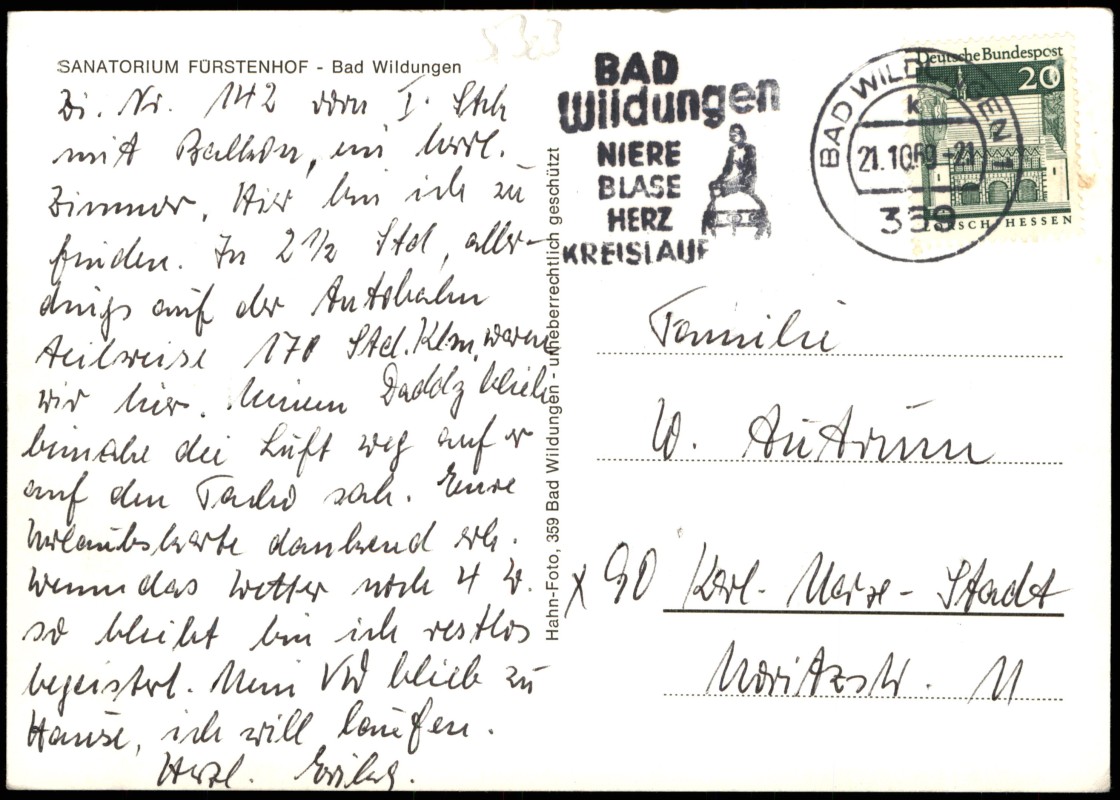 SANATORIUM FÜRSTENHOF - Bad Wildungen
Zi. Nr. 142 vorn I. Stck
mit Balkon, ein herrl.
Zimmer. Hier bin ich zu
finden. In 2 1/2 Std, aller-
dings auf der Autobahn
teilweise 170 Std. Klm, waren
wir hier. Meinem Daddy blieb
beinahe die Luft weg auf er
auf den Tacho sah. Eure
Urlaubskarte dankend erh.
Wenn das Wetter noch 4 W.
so bleibt bin ich restlos
begeistert. Mein VW blieb zu
Hause, ich will laufen.
Herzl.
Hahn-Foto, 359 Bad Wildungen - urheberrechtlich geschützt
BAD
Wildungen
NIERE
BLASE
HERZ
KREISLAUF
BAD WILDUNGEN 1
k
21.10.69-21
359
Deutsche Bundespost
20
HESSEN
Familie
W. Autrum
x 90 Karl-Marx-Stadt
Moritzstr. 11